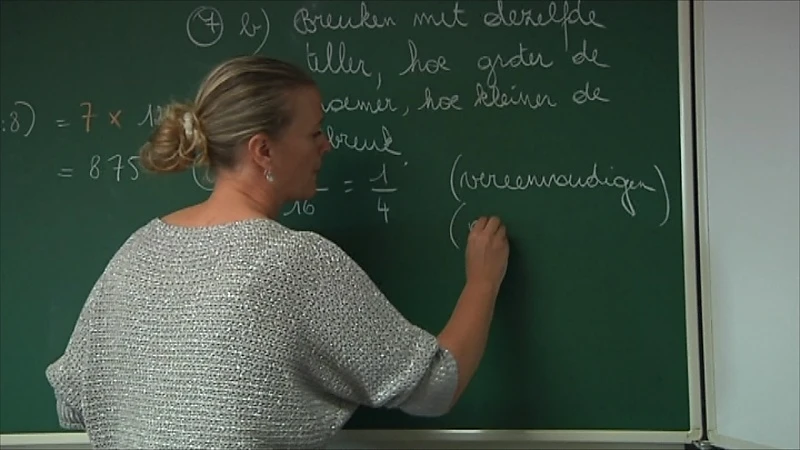 7 b) Breuken met dezelfde
teller, hoe groter de
noemer, hoe kleiner de
breuk
:8) = 7 x
= 875
16 = 1/4
(vereenvoudigen)
(